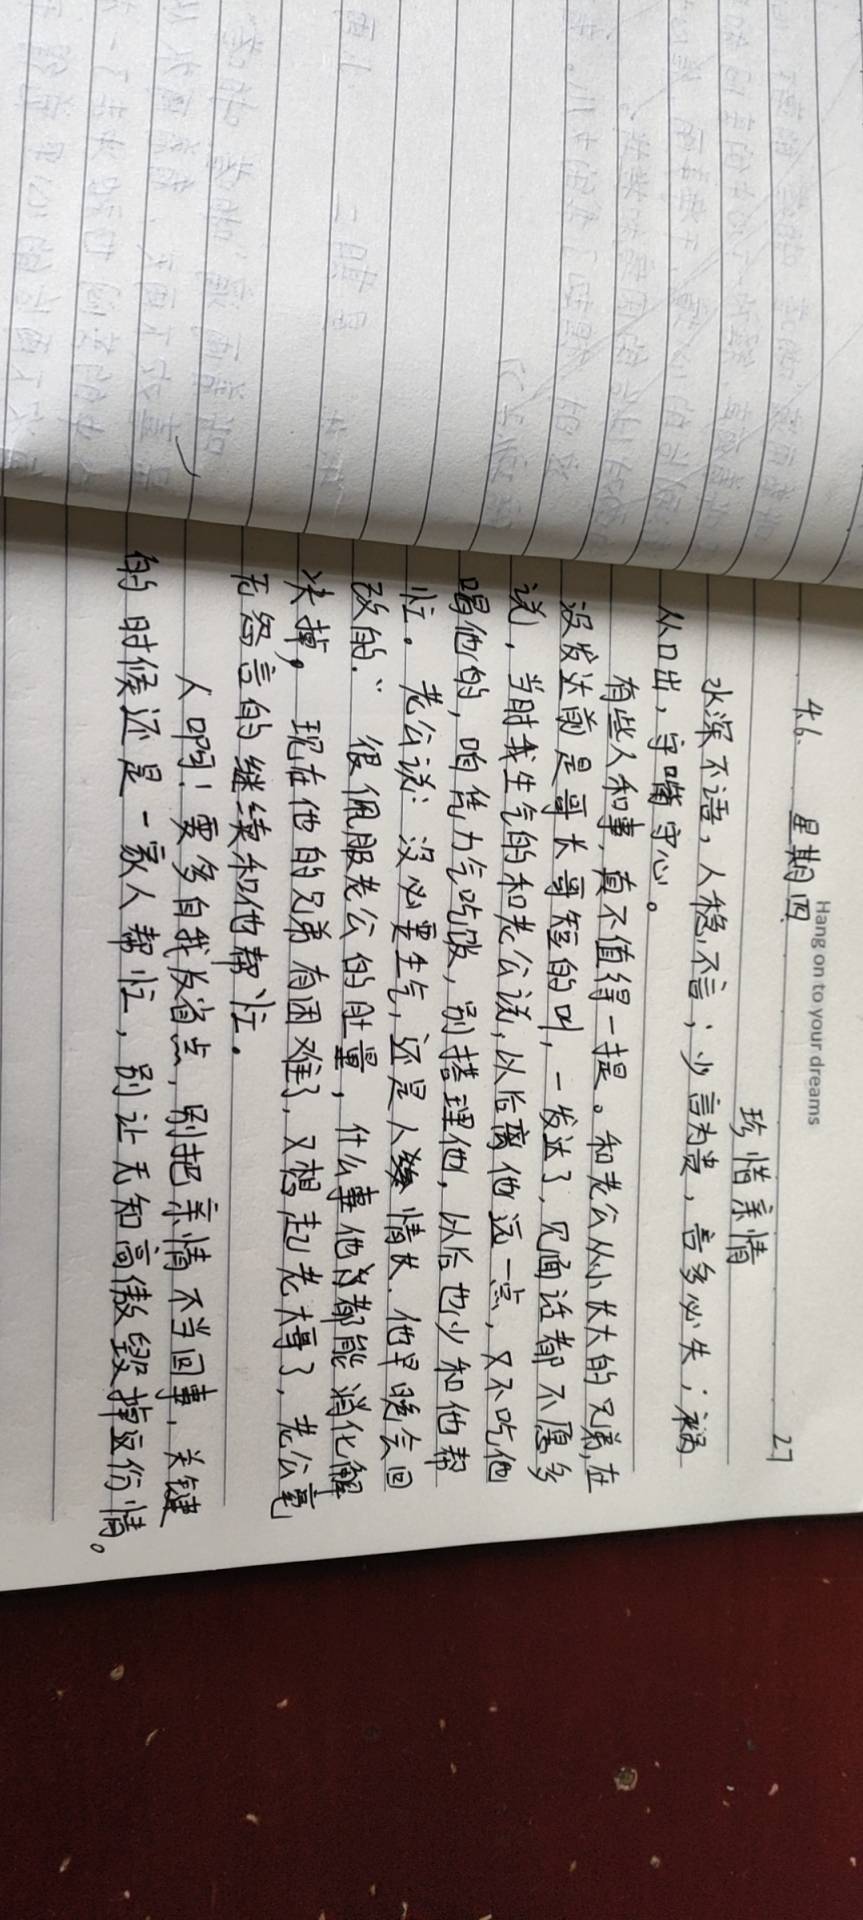 Hang on to your dreams
4.6. 星期四 27
珍惜亲情
水深不语，人稳不言；少言为贵，言多必失；祸
从口出，守嘴守心。
有些人和事，真不值得一提。和老公从小长大的兄弟，在
没发达前是哥长哥短的叫，一发达了，见面话都不愿多
说，当时我生气的和老公说，以后离他远一点，又不吃他
喝他的，咱凭力气吃饭，别搭理他，以后也少和他帮
忙。老公说：没必要生气，还是人情大.他早晚会回
改的.” 很佩服老公的肚量，什么事他都能消化解
决掉，现在他的兄弟有困难了，又想起老大哥了，老公毫
无怨言的继续和他帮忙.
人啊！要多自我反省点，别把亲情不当回事，关键
的时候还是一家人帮忙，别让无知高傲毁掉这份情。